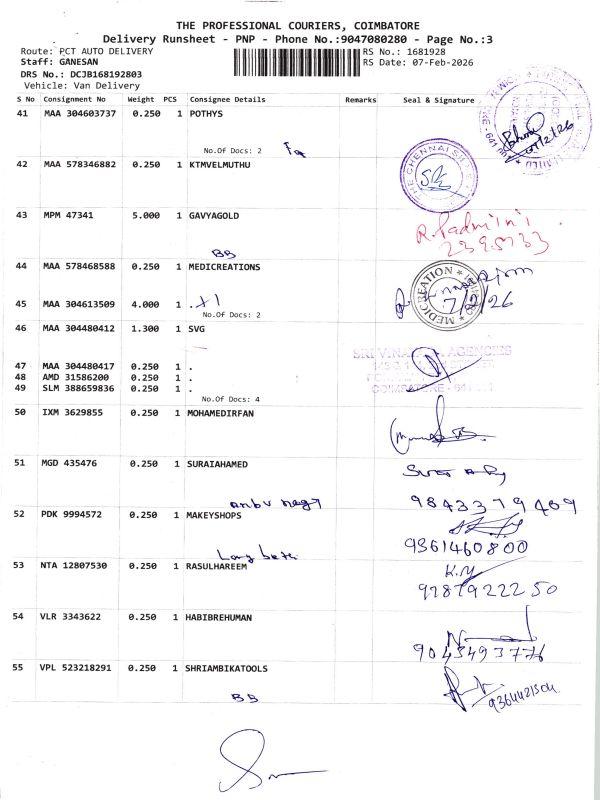 THE PROFESSIONAL COURIERS, COIMBATORE
Delivery Runsheet - PNP - Phone No.:9047080280 - Page No.:3
Route: PCT AUTO DELIVERY RS No.: 1681928
Staff: GANESAN RS Date: 07-Feb-2026
DRS No.: DCJB168192803
Vehicle: Van Delivery
S No Consignment No Weight PCS Consignee Details Remarks Seal & Signature
41 MAA 304603737 0.250 1 POTHYS
No.Of Docs: 2
42 MAA 578346882 0.250 1 KTMVELMUTHU
THE CHENNAI SILKS
43 MPM 47341 5.000 1 GAVYAGOLD
R. Padmini
BB
44 MAA 578468588 0.250 1 MEDICREATIONS
MEDICREATION
7/2/26
45 MAA 304613509 4.000 1 .
No.Of Docs: 2
46 MAA 304480412 1.300 1 SVG
47 MAA 304480417 0.250 1 .
48 AMD 31586200 0.250 1 .
49 SLM 388659836 0.250 1 .
No.Of Docs: 4
50 IXM 3629855 0.250 1 MOHAMEDIRFAN
51 MGD 435476 0.250 1 SURAIAHAMED
9843379409
52 PDK 9994572 0.250 1 MAKEYSHOPS
9361460800
53 NTA 12807530 0.250 1 RASULHAREEM
K.M
54 VLR 3343622 0.250 1 HABIBREHUMAN
9043493776
55 VPL 523218291 0.250 1 SHRIAMBIKATOOLS
BB